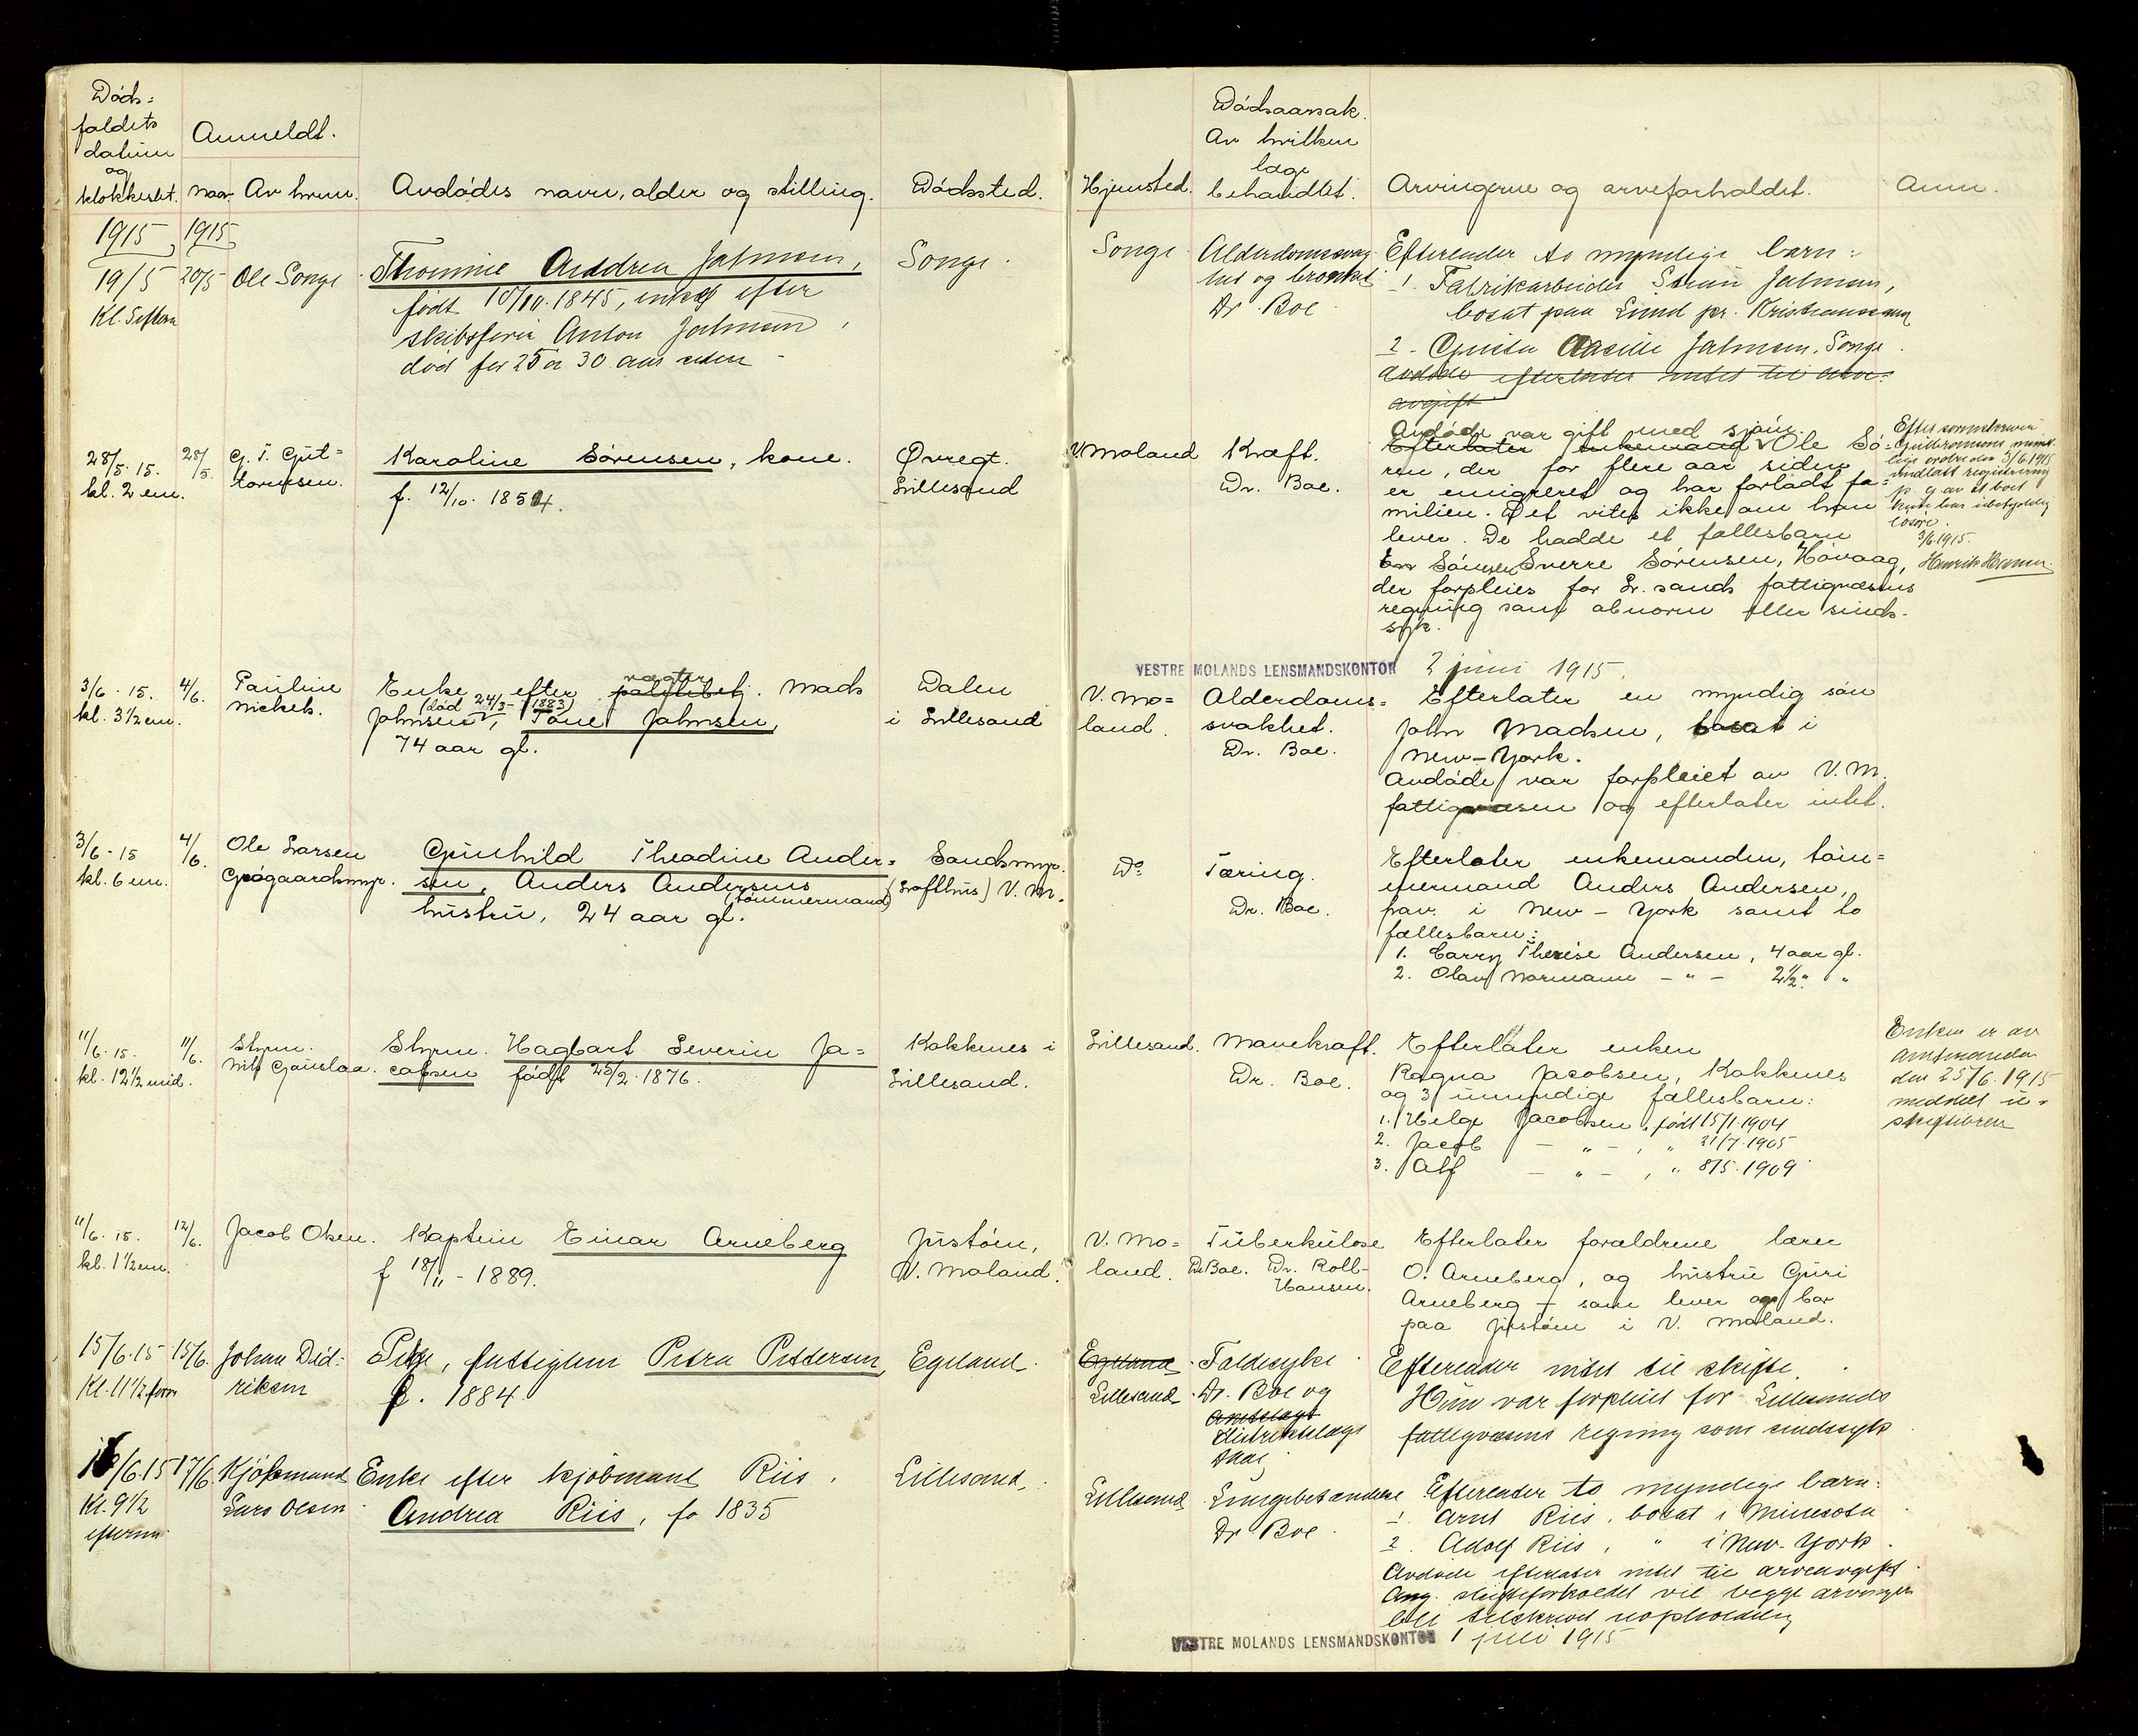 Døds=
faldets
datum
og
klokkeslet.
Anmeldt.
naar
Av hvem.
Avdødes navn, alder og stilling.
Dødssted.
Hjemsted.
Dødsaarsak.
Av hvilken
læge
behandlet.
Arvingerne og arveforholdet.
Anm.
1915
1915
19/5
Kl. 5 eftm
20/5
Ole Songe
Thomine Andrea Jahnsen,
født 10/10.1845, enke efter
skibsfører Anton Jahnsen,
død for 25 a 30 aar siden
Songe.
Songe
Alderdomssvag
het og bronkit
Dr Boe
Efterlader to myndige barn:
1. Fabrikarbeider Jahnsen,
bosat paa Lund pr. Kristianssand
2. Jahnsen, Songe.
Avdøde efterlater intet til arve=
avgift
28/5. 15.
kl. 2 em.
28/5.
G. T. Gut=
tormsen.
Karoline Sørensen, kone.
f. 12/10. 1854.
Øvregt.
Lillesand
V Moland
Kræft.
Dr. Boe.
Avdøde var gift med sjøm.
Efterlater enkemand Ole Sø=
ren, der for flere aar siden
er emigreret og har forladt fa=
milien. Det vites ikke om han
lever. De hadde et fællesbarn
Sverre Sørensen, Høvaag,
der forpleies for L.sands fattigvæsens
regning som abnorm eller sinds-
syk.
Efter sorenskriver
Guttormsens mundt-
lige ordre den 3/6 1915
undlatt registrering
av et boet
kun har ubetydelig
løsøre.
3/6.1915.
VESTRE MOLANDS LENSMANDSKONTOR 2 juni 1915.
3/6. 15.
kl. 3 1/2 em.
4/6.
Pauline
Nickels.
Enke efter vægter Mads
(død 24/3-1883)
Jahnsen, Tone Jahnsen,
74 aar gl.
Dalen
i Lillesand
V. Mo=
land.
Alderdoms=
svakhet.
Dr. Boe.
Efterlater en myndig søn
John Madsen, bosat i
New-York.
Avdøde var forpleiet av V. M.
fattigvæsen og efterlater intet.
3/6 - 15
kl. 6 em.
4/6.
Ole Larsen
Grøgaardsmyr.
Gunhild Theodine Ander=
sen, Anders Andersens
(tømmermand)
hustru, 24 aar gl.
Sandsmyr.
(Lofthus) V. M.
Do
Tæring.
Dr. Boe.
Efterlater enkemanden, tøm=
mermand Anders Andersen,
frav. i New-York samt to
fællesbarn:
1. Carry Therese Andersen, 4 aar gl.
2. Olav Normann - " - 2 1/2 " "
11/6. 15.
kl. 12 1/2 mid.
11/6.
Styrm.
Nils Gunslaa.
Styrm. Hagbart Severin Ja=
cobsen født 25/2. 1876.
Kokkenes i
Lillesand.
Lillesand.
Mavekræft.
Dr. Boe.
Efterlater enken
Ragna Jacobsen, Kokkenes
og 3 umyndige fællesbarn:
1. Helge Jacobsen, født 15/1.1904
2. Jacob - " - , " 21/7.1905
3. Alf - " - , " 8/5.1909
Enken er av
amtmanden
den 25/6.1915
meddelt u=
skiftebrev
11/6. 15.
kl. 1 1/2 em.
12/6.
Jacob Olsen.
Kaptein Einar Arneberg
f 18/11 - 1889.
Justøen,
V. Moland.
V. Mo=
land.
Tuberkulose
Dr Boe. Dr. Roll-
Hansen.
Efterlater forældrene lærer
O. Arneberg, og hustru Guri
Arneberg - som lever og bor
paa Justøen i V. Moland.
15/6.15
Kl. 11 1/2 form
15/6.
Johan Did=
riksen
Pike, fattiglem Petra Pettersen,
f. 1884
Egeland.
Egeland
Lillesand
Faldesyke
Dr. Boe og
Amtslæge
distriktslæge
Efterlader intet til skifte.
Hun var forpleiet for Lillesands
fattigvæsens regning som sindssyk
16/6.15
Kl. 9 1/2
efterm
17/6.
Kjøbmand
Lars Olsen
Enke efter kjøbmand Riis,
Andrea Riis, fø 1835
Lillesand.
Lillesand
Lungebetændelse
Dr Boe.
Efterlader to myndige barn:
1. Arnt Riis, bosat i Minesota
2. Adolf Riis, " i New-York.
Avdøde efterlater intet til arveavgift
Ang. skifteforholdet vil begge arvinger
bli tilskrevet uopholdelig
VESTRE MOLANDS LENSMANDSKONTOR 1 juli 1915